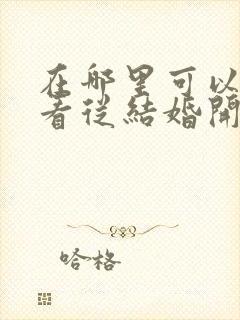 在哪里可以
看從結婚開
哈格